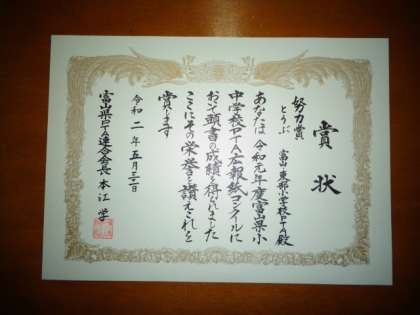 賞状
努力賞
とうぶ 富山市東部小学校PTA殿
あなたは令和元年度富山県小
中学校PTA広報紙コンクールに
おいて頭書の成績を得られました
ここにその栄誉を讃えこれを
賞します
令和二年五月三一日
富山県PTA連合会長 本江 学